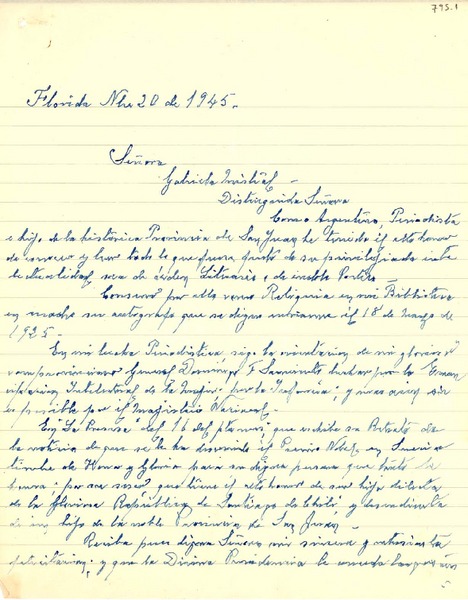 795.1
Florida Nbre 20 de 1945.-
Señora
Gabriela Mistral -
Distinguida Señora
Como Argentino, Periodista
e hijo de la histórica Provincia de San Juan he tenido el alto honor
de conocer y leer todo lo que fuera fruto de su privilegiada inte
lectualidad sea de orden Literario, o de indole Poético -
Conservo por ello como Reliquia en mi Biblioteca
su autógrafo que se digno enviarme el 18 de Mayo de
1925 -
En mi lucha Periodistica, sigo la orientacion de mi glorioso
comprovinciano General Domingo F Sarmiento luchar por la Eman
cipacion Intelectual de la Mujer,
posible por el Magisterio Nacional -
En "La Prensa" del 16 del que he visto su Retrato
la noticia de que se le ha discernido el Premio Nobel
de Honor y Gloria para su digna persona que tanto la
honra; por ser que tiene el alto honor de ser hija dilecta
de la Gloriosa Republica de Santiago de Chile, y descendiente
de un hijo de la noble Provincia de San Juan -
Reciba pues digna Señora mi sincera y entusiasta
felicitacion; y que la Divina Providencia le conceda largos años